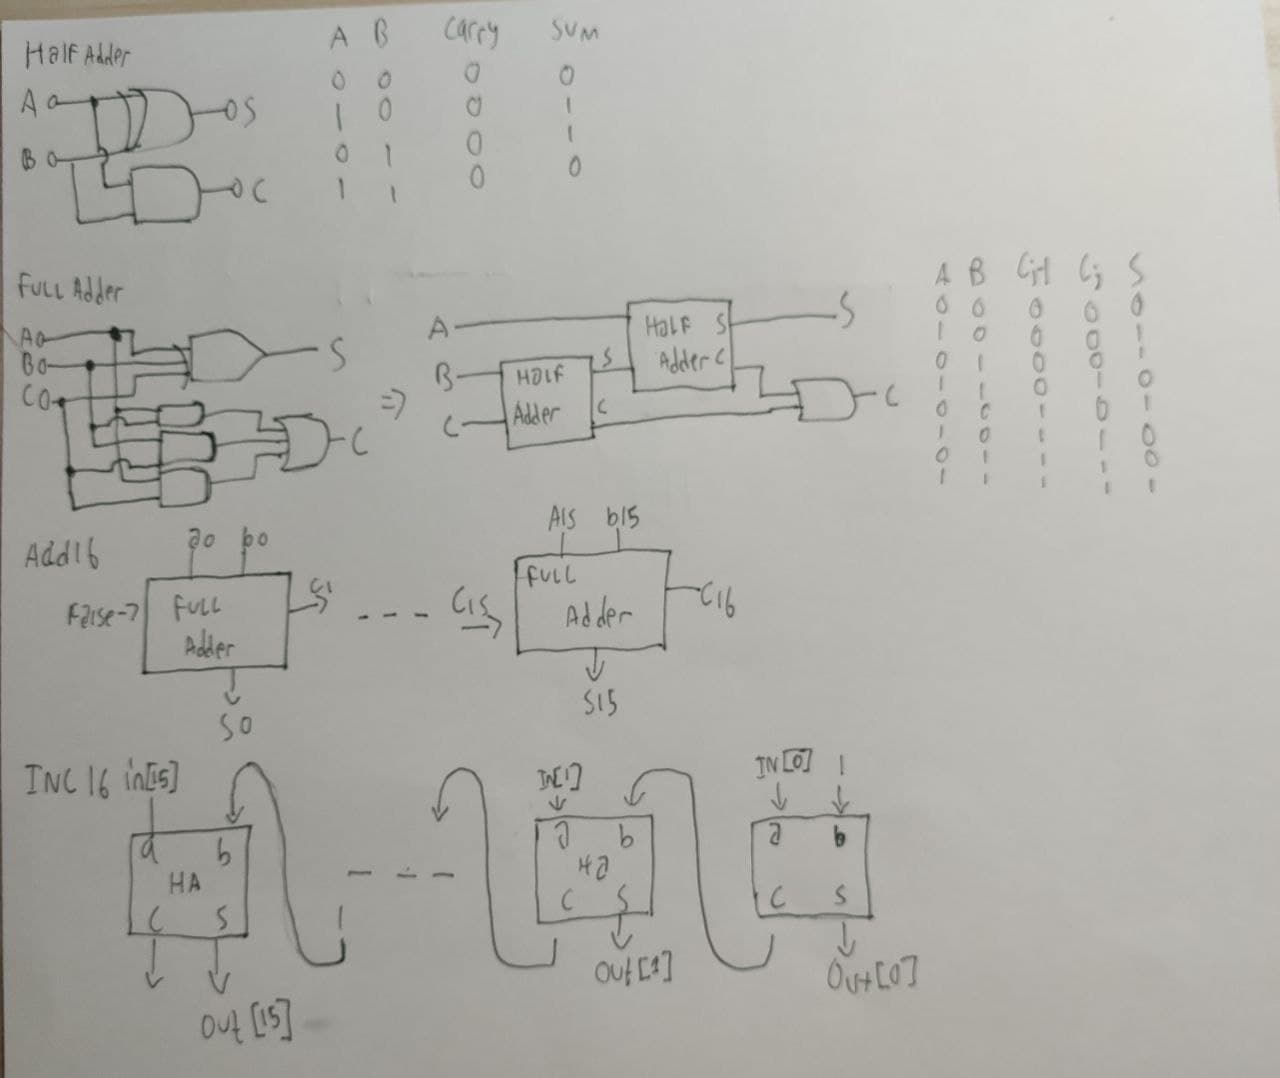 Half Adder
A B Carry SUM
0 0 0 0
1 0 0 1
0 1 0 1
1 1 0 0
A S
B C
Full Adder
A
B
C
S
C
=>
A
B
C
Half Adder
S
C
Half Adder
S
C
S
C
A B Ci+1 Ci S
0 0 0 0 0
1 0 0 0 1
0 1 0 0 1
1 1 0 1 0
0 0 1 0 1
1 0 1 1 0
0 1 1 1 0
1 1 1 1 1
Add16
a0 b0
False->
FULL
Adder
C1
S0
C15
A15 b15
FULL
Adder
C16
S15
INC16 in[15]
a b
HA
C S
Out[15]
IN[1]
a b
Ha
C S
Out[1]
IN[0] 1
a b
C S
Out[0]